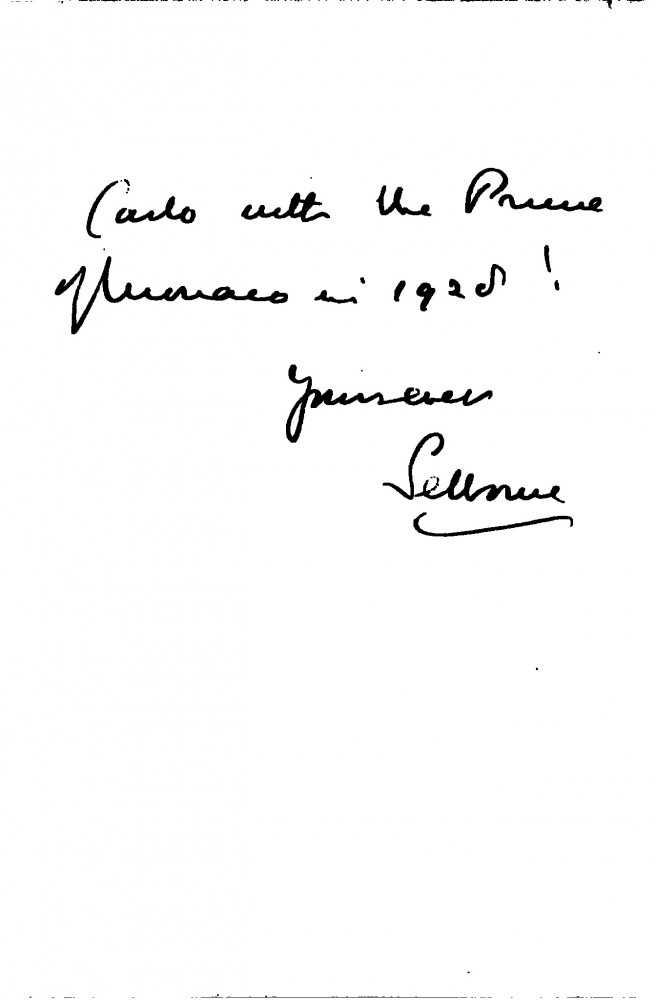 Carlo with the Prince
of Monaco in 1928 !
Yours ever
Selborne